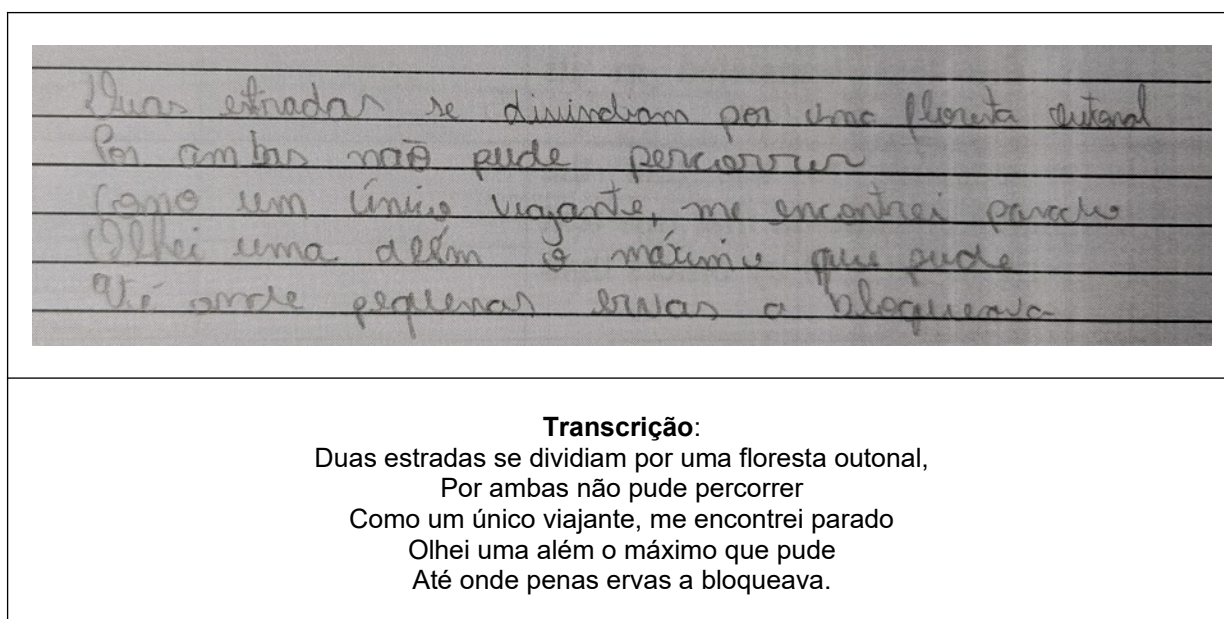 Duas estradas se divindiam por uma floresta outonal
Por ambas não pude percorrer
Como um único viajante, me encontrei parado
Olhei uma além o máximo que pude
Até onde pequenas ervas a bloqueava
Transcrição:
Duas estradas se dividiam por uma floresta outonal,
Por ambas não pude percorrer
Como um único viajante, me encontrei parado
Olhei uma além o máximo que pude
Até onde penas ervas a bloqueava.